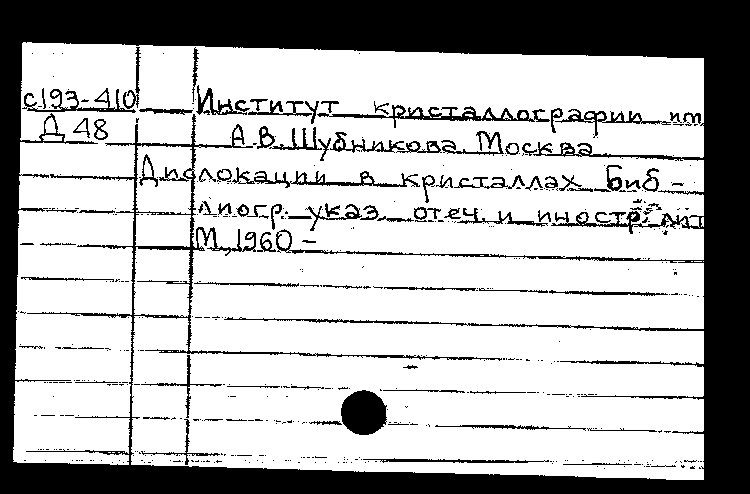 с193-410 Институт кристаллографии им
Д 48 А.В. Шубникова. Москва
Дислокации в кристаллах Биб-
лиогр. указ. отеч. и иностр. лит
М, 1960 -